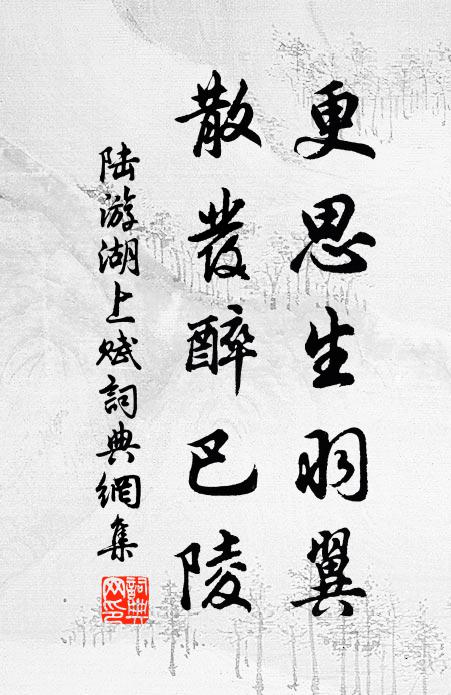 更思生羽翼
散發醉巴陵
陆游湖上赋詞典網集
詞典
网印